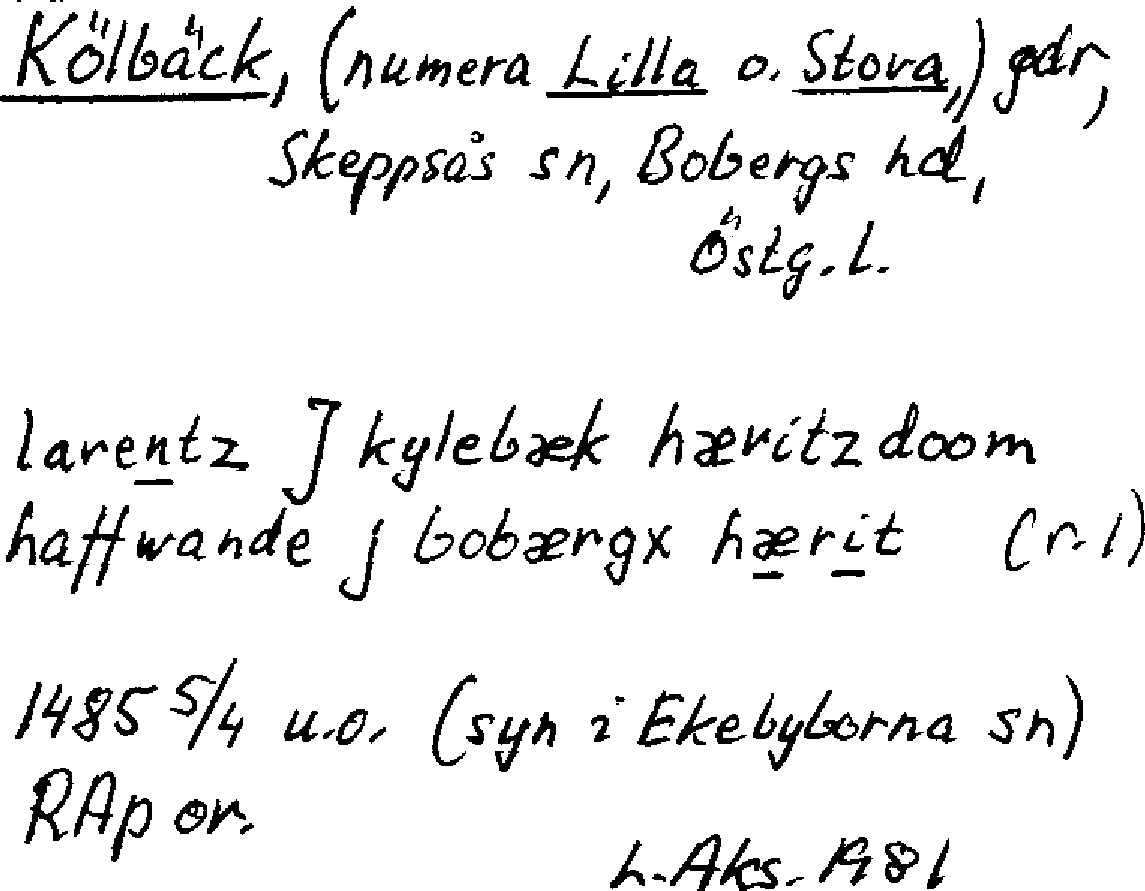 Kölbäck, (numera Lilla o. Stora,) gdr,
Skeppsås sn, Bobergs hd,
Östg. l.
larentz J kylebæk hæritz doom
haffwande j bobærgx hærit (r. 1)
1485 5/4 u.o. (syn i Ekebyborna sn)
RAp or.
L. Aks. 1981